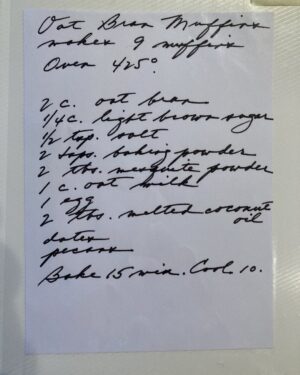 Oat Bran Muffins
makes 9 muffins
Oven 425°
2 c. oat bran
1/4 c. light brown sugar
1/2 tsp. salt
2 tsps. baking powder
2 tbs. mesquite powder
1 c. oat milk
1 egg
2 tbs. melted coconut
oil
dates
pecans
Bake 15 min. Cool 10.